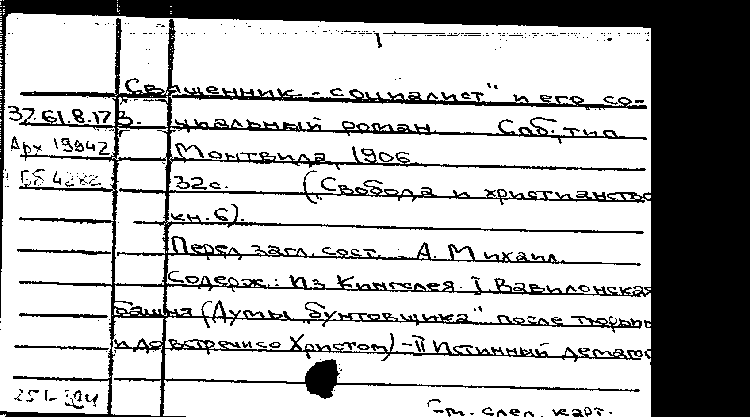 „Священник - социалист" и его со-
37.61.8.173. циальный роман. Спб, тип.
Арх 19942 Монтвида, 1906
ББ 4282 32с. („Свобода и христианство
кн. 6).
Перед загл. сост.: А. Михаил.
Содерж.: Из Кингслея. I. Вавилонская
башня (Думы „бунтовщика" после тюрьмы
и до встречи со Христом) - II Истинный демагог
251-
См. след. карт.